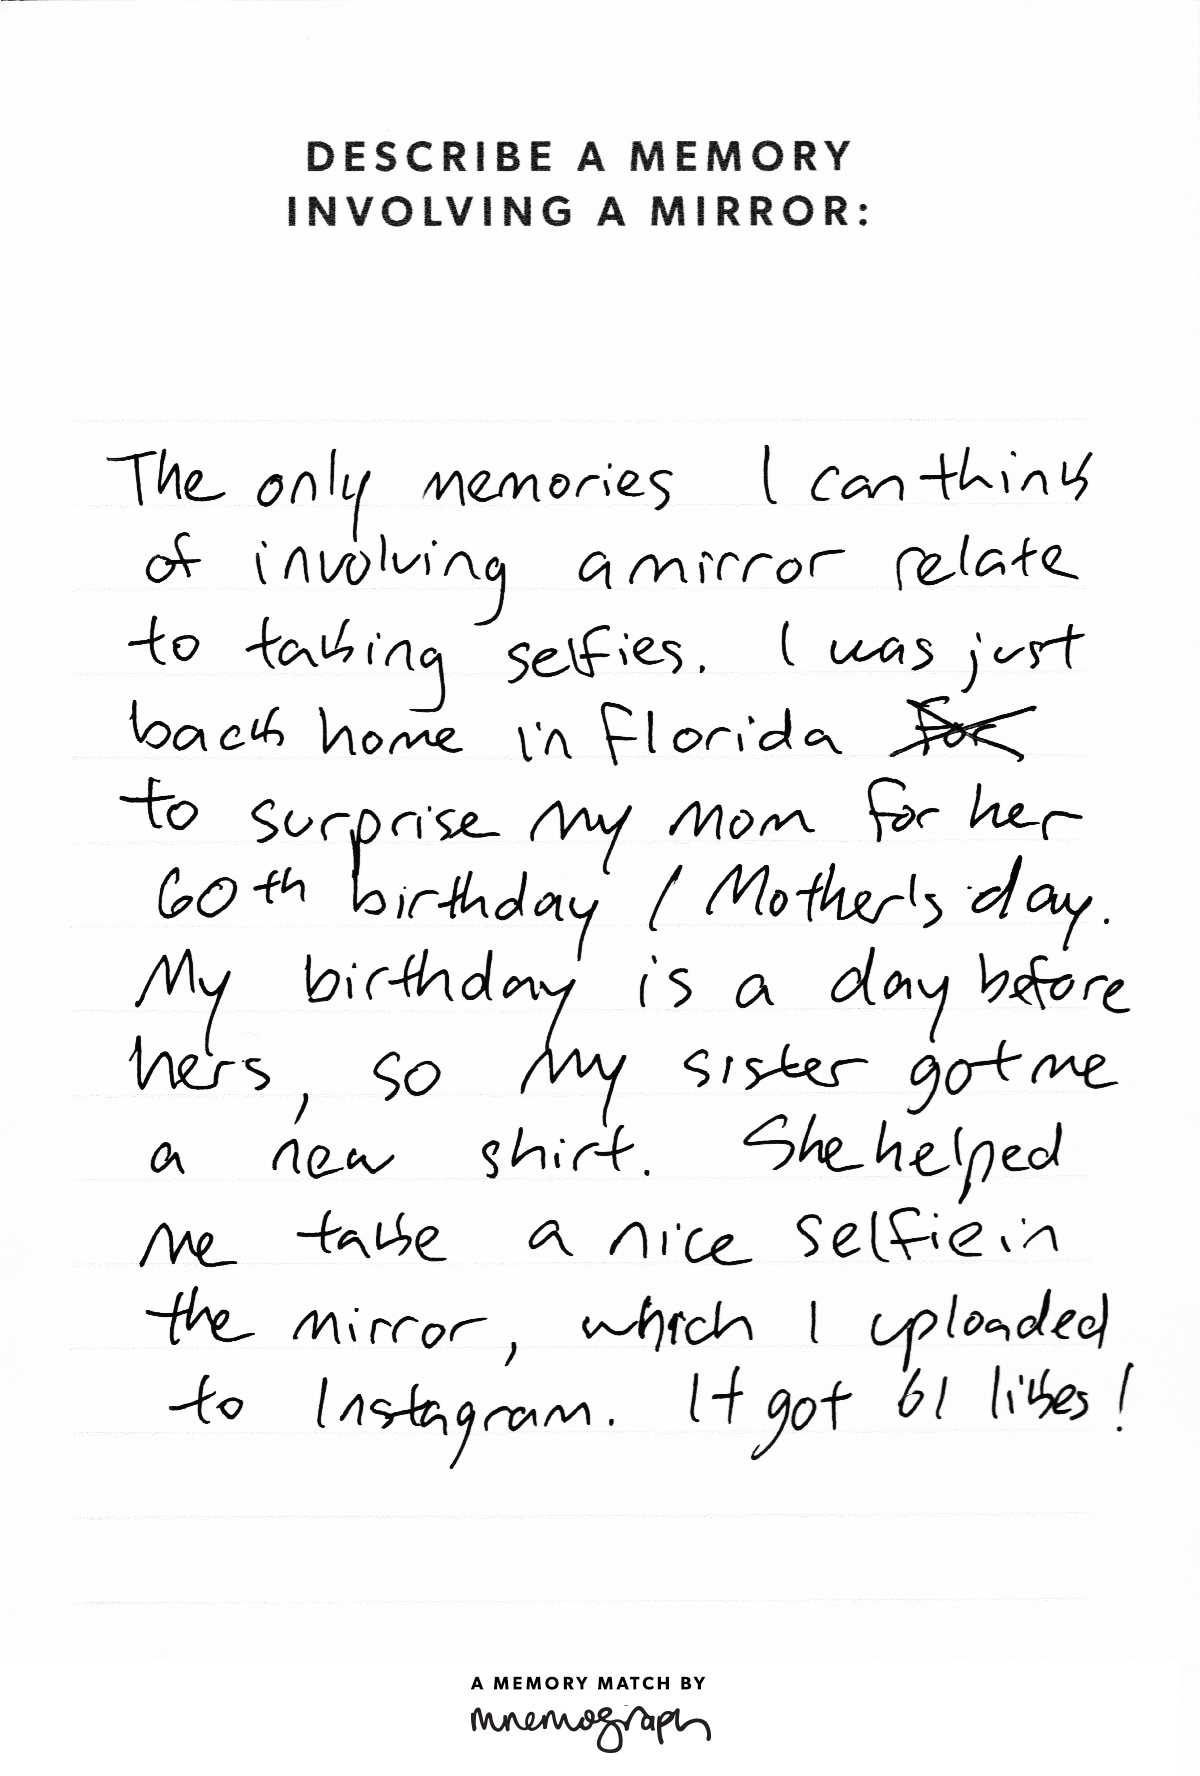 DESCRIBE A MEMORY
INVOLVING A MIRROR:
The only memories I can think
of involving a mirror relate
to taking selfies. I was just
back home in Florida for
to surprise my mom for her
60th birthday / Mother's day.
My birthday is a day before
hers, so my sister got me
a new shirt. She helped
me take a nice selfie in
the mirror, which I uploaded
to Instagram. It got 61 likes!
A MEMORY MATCH BY
mnemograph